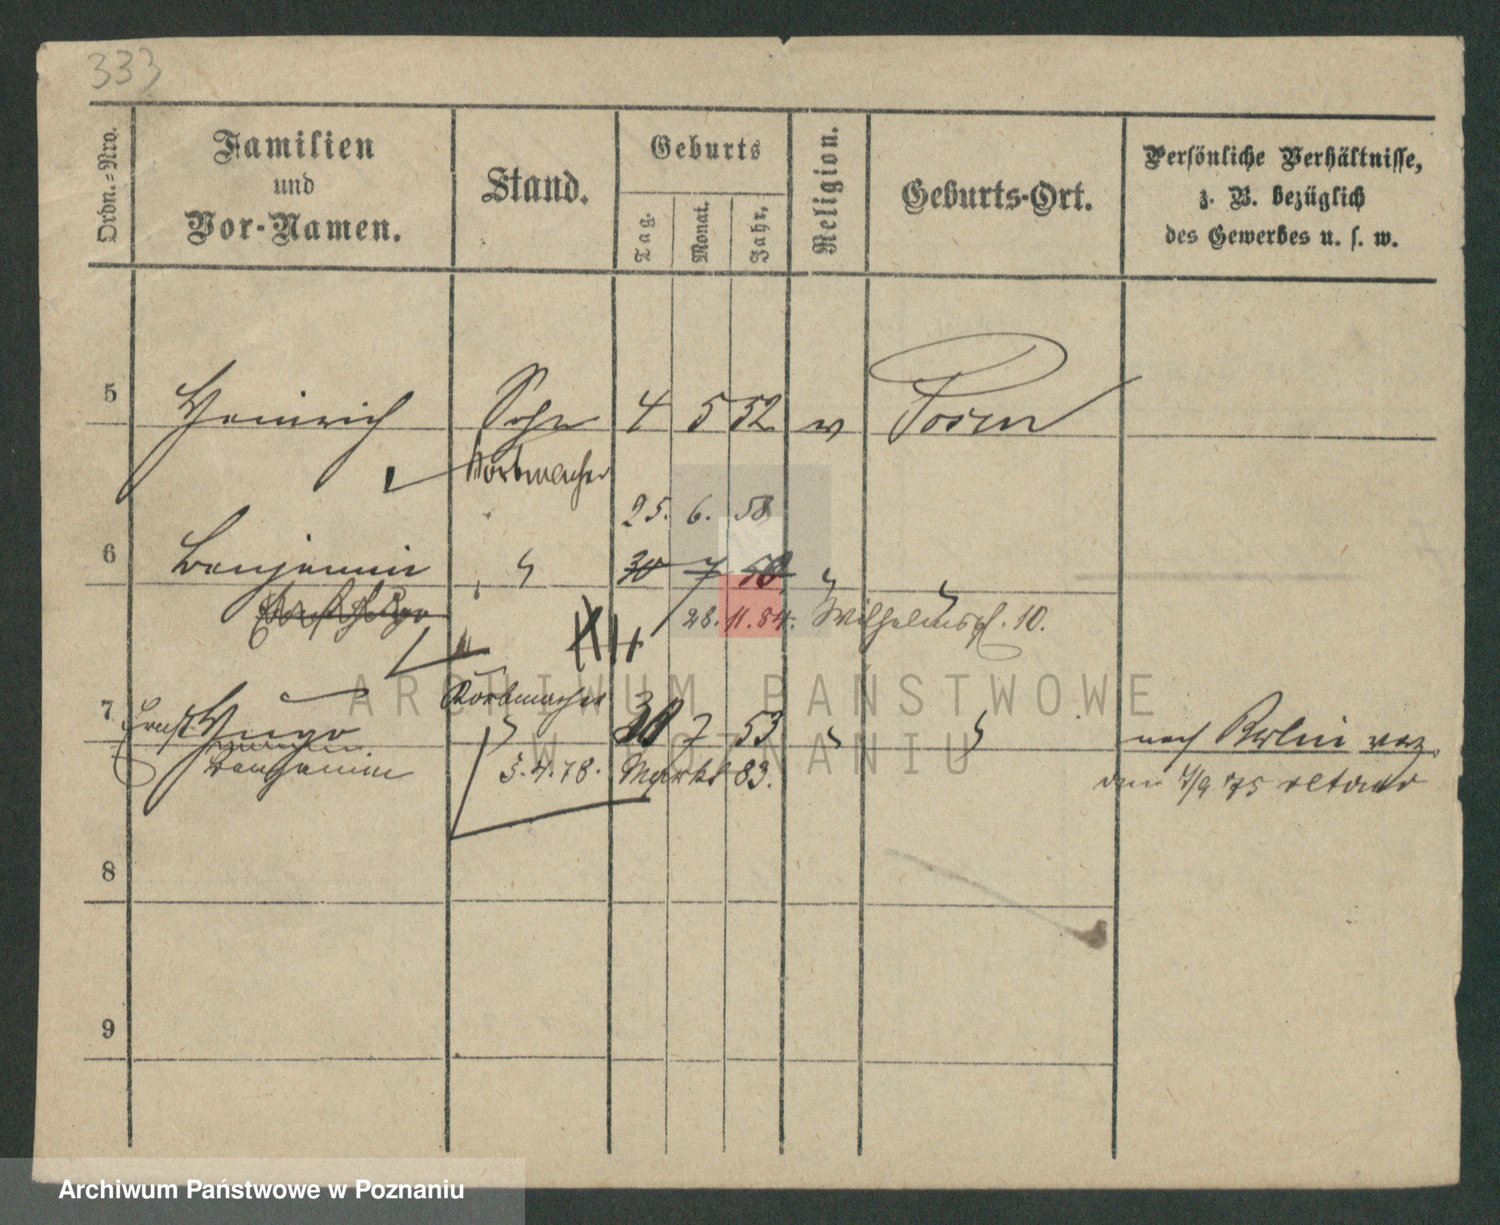 333
Ordn.-Nro.
Familien
und
Vor-Namen.
Stand.
Geburts
Tag.
Monat.
Jahr.
Religion.
Geburts-Ort.
Persönliche Verhältnisse,
z. B. bezüglich
des Gewerbes u. s. w.
5 Heinrich Sohn 4 5 52 Posen
Korbmacher
25. 6. 58
6 Benjamin 30 7 58
28. 11. 84. Wilhelmspl. 10.
Korbmacher
7 Ernst Hugo 30 7 53 nach Berlin verz.
Benjamin 5.4.78. Markt 83. den 4/9 75 retour
8
9
ARCHIWUM PAŃSTWOWE
W POZNANIU
Archiwum Państwowe w Poznaniu